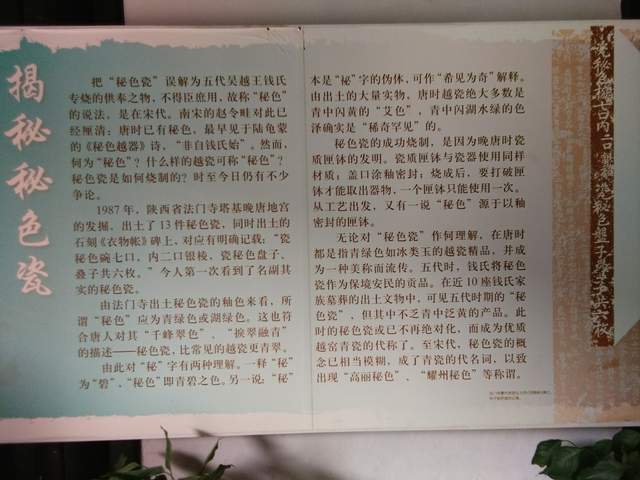 揭秘秘色瓷
把“秘色瓷”误解为五代吴越王钱氏
专烧的供奉之物，不得臣庶用，故称“秘色”
的说法，是在宋代。南宋的赵令畤对此已
经厘清：唐时已有秘色。最早见于陆龟蒙
的《秘色越器》诗，“非自钱氏始”。然而，
何为“秘色”？什么样的越瓷可称“秘色”？
秘色瓷是如何烧制的？时至今日仍有不少
争论。
1987年，陕西省法门寺塔基晚唐地宫
的发掘，出土了13件秘色瓷，同时出土的
石刻《衣物帐》碑上，对应有明确记载：“瓷
秘色碗七口，内二口银棱，瓷秘色盘子、
叠子共六枚。”今人第一次看到了名副其
实的秘色瓷。
由法门寺出土秘色瓷的釉色来看，所
谓“秘色”应为青绿色或湖绿色。这也符
合唐人对其“千峰翠色”、“捩翠融青”
的描述——秘色瓷，比常见的越瓷更青翠。
由此对“秘”字有两种理解。一释“秘”
为“碧”。“秘色”即青碧之色。另一说：“秘”
本是“祕”字的伪体，可作“希见为奇”解释。
由出土的大量实物，唐时越瓷绝大多数是
青中闪黄的“艾色”，青中闪湖水绿的色
泽确实是“稀奇罕见”的。
秘色瓷的成功烧制，是因为晚唐时瓷
质匣钵的发明。瓷质匣钵与瓷器使用同样
材质；盖口涂釉密封；烧成后，要打破匣
钵才能取出器物，一个匣钵只能使用一次。
从工艺出发，又有一说“秘色”源于以釉
密封的匣钵。
无论对“秘色瓷”作何理解，在唐时
都是指青绿色如冰类玉的越瓷精品，并成
为一种美称而流传。五代时，钱氏将秘色
瓷作为保境安民的贡品。在近10座钱氏家
族墓葬的出土文物中，可见五代时期的“秘
色瓷”，但其中不乏青中泛黄的产品。此
时的秘色瓷或已不再绝对化，而成为优质
越窑青瓷的代称了。至宋代，秘色瓷的概
念已相当模糊，成了青瓷的代名词，以致
出现“高丽秘色”、“耀州秘色”等称谓。
瓷秘色碗七口内二口银棱瓷秘色盘子叠子共六枚